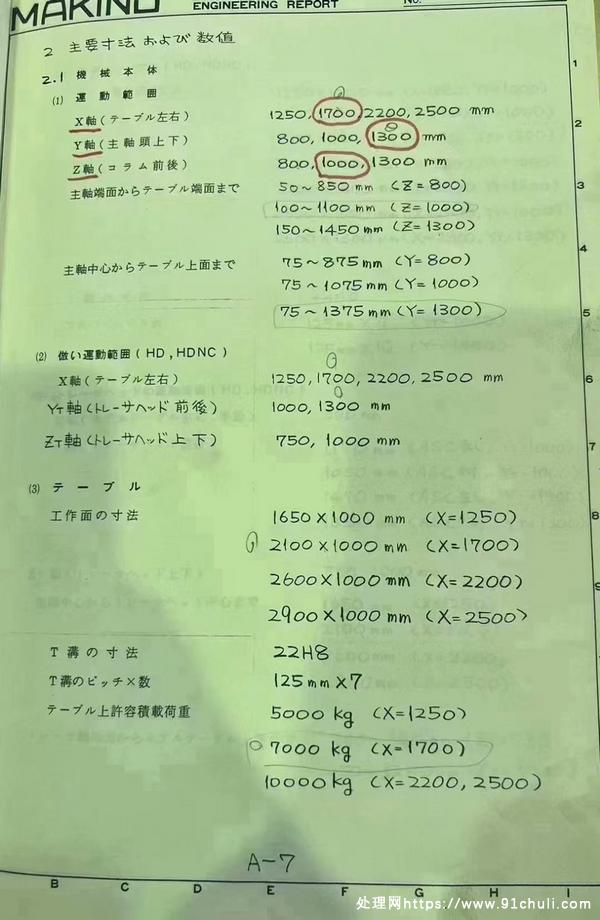 MAKINO ENGINEERING REPORT No.
2 主要寸法および数値
2.1 機械本体
(1) 運動範囲
X軸(テーブル左右) 1250, 1700, 2200, 2500 mm
Y軸(主軸頭上下) 800, 1000, 1300 mm
Z軸(コラム前後) 800, 1000, 1300 mm
主軸端面からテーブル端面まで 50~850 mm (Z=800)
100~1100 mm (Z=1000)
150~1450 mm (Z=1300)
主軸中心からテーブル上面まで 75~875 mm (Y=800)
75~1075 mm (Y=1000)
75~1375 mm (Y=1300)
(2) 倣い運動範囲(HD,HDNC)
X軸(テーブル左右) 1250, 1700, 2200, 2500 mm
YT軸(トレーサヘッド前後) 1000, 1300 mm
ZT軸(トレーサヘッド上下) 750, 1000 mm
(3) テーブル
工作面の寸法 1650×1000 mm (X=1250)
2100×1000 mm (X=1700)
2600×1000 mm (X=2200)
2900×1000 mm (X=2500)
T溝の寸法 22H8
T溝のピッチ×数 125mm×7
テーブル上許容積載荷重 5000 kg (X=1250)
7000 kg (X=1700)
10000 kg (X=2200, 2500)
A-7
B C D E F G H I
1
2
3
4
5
6
7
8
9
处理网https://www.91chuli.com